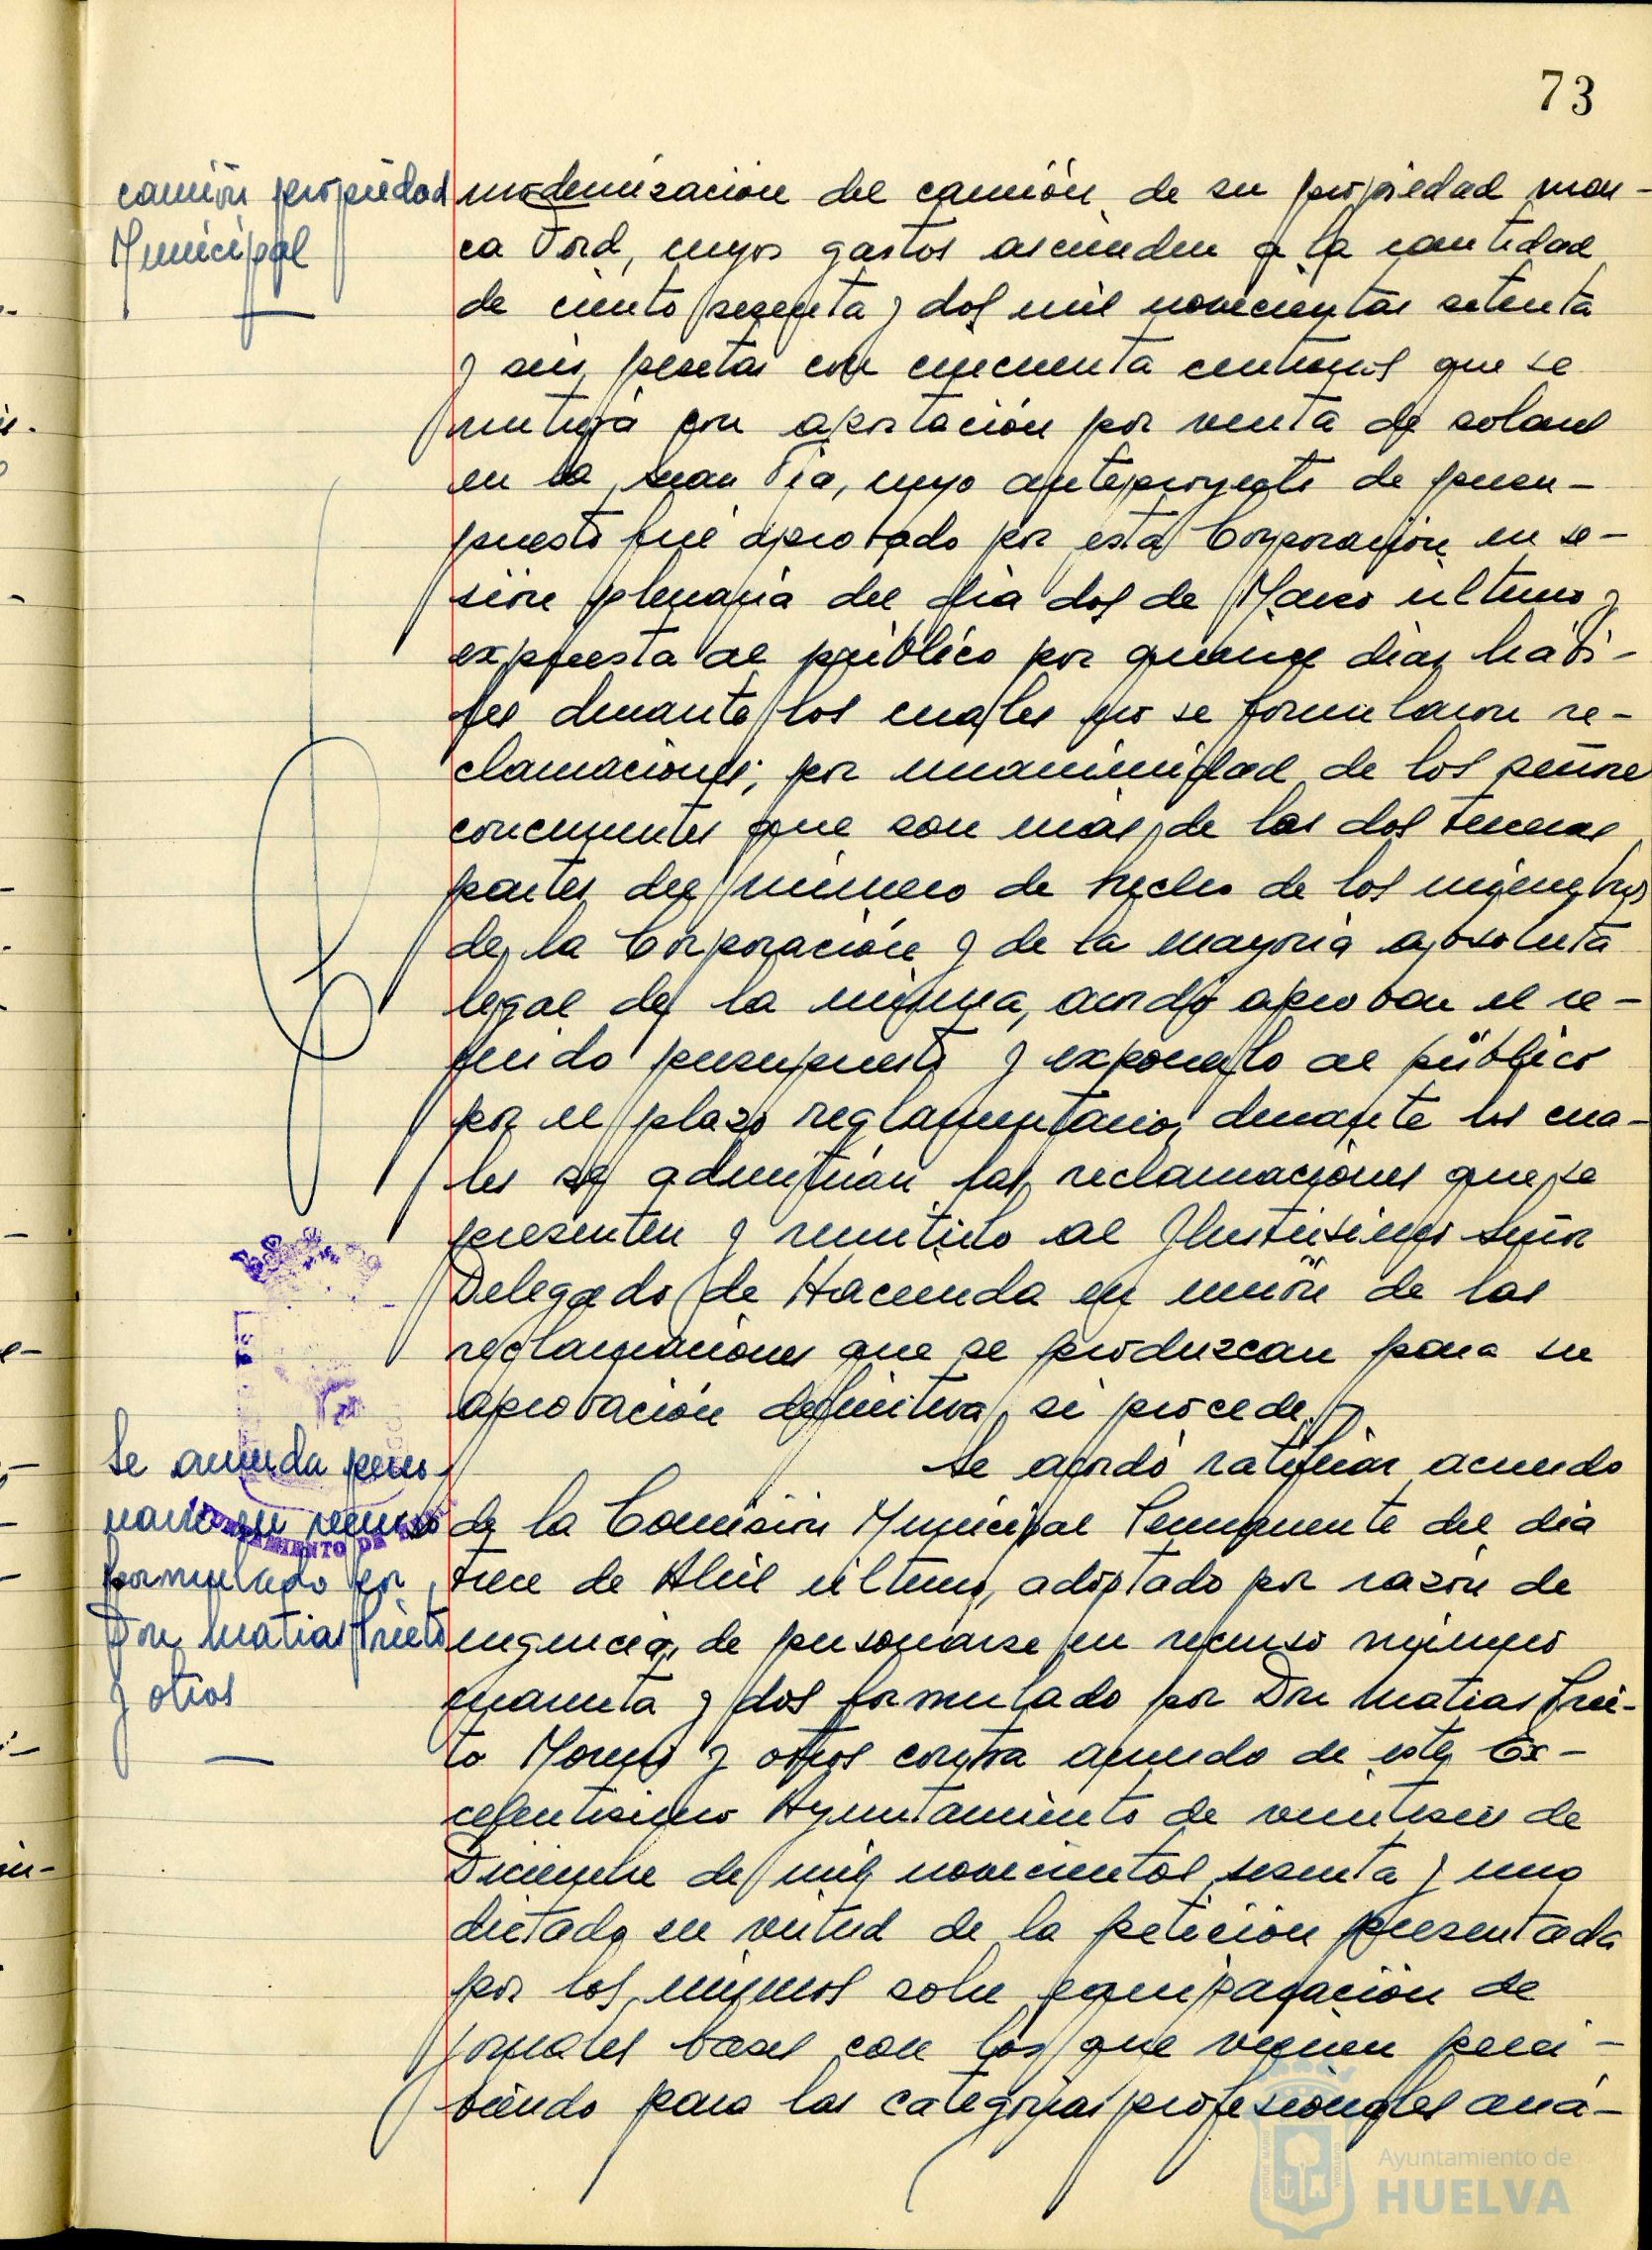 73
camión propiedad
Municipal
modernización del camión de su propiedad mar-
ca Ford, cuyos gastos ascienden a la cantidad
de ciento sesenta y dos mil novecientas setenta
y seis pesetas con cincuenta centimos que se
nutrirá con aportación por venta de solares
en la Gran Vía, cuyo anteproyecto de presu-
puesto fué aprobado por esta Corporación en se-
sión plenaria del día dos de Marzo último y
expuesta al público por quince días hábi-
les durante los cuales no se formularon re-
clamaciones; por unanimidad de los señores
concurrentes que son más de las dos terceras
partes del número de hecho de los miembros
de la Corporación y de la mayoría absoluta
legal de la misma, acordó aprobar el re-
ferido presupuesto y exponerlo al público
por el plazo reglamentario, durante los cua-
les se admitirán las reclamaciones que se
presenten y remitirlo al Ilustrisimo Señor
Delegado de Hacienda en unión de las
reclamaciones que se produzcan para su
aprobación definitiva, si procede.
Se acuerda perso-
narse en recurso
formulado por
Don Matias Prieto
y otros
Se acordó ratificar acuerdo
de la Comision Municipal Permanente del día
trece de Abril último, adoptado por razón de
urgencia, de personarse en recurso número
cuarenta y dos formulado por Don Matias Prie-
to Moreno y otros contra acuerdo de este Ex-
celentisimo Ayuntamiento de veintiseis de
Diciembre de mil novecientos sesenta y uno
dictado en virtud de la petición presentada
por los mismos sobre equiparación de
jornales bases con los que vienen perci-
biendo para las categorías profesionales aná-
AYUNTAMIENTO DE
Ayuntamiento de
HUELVA